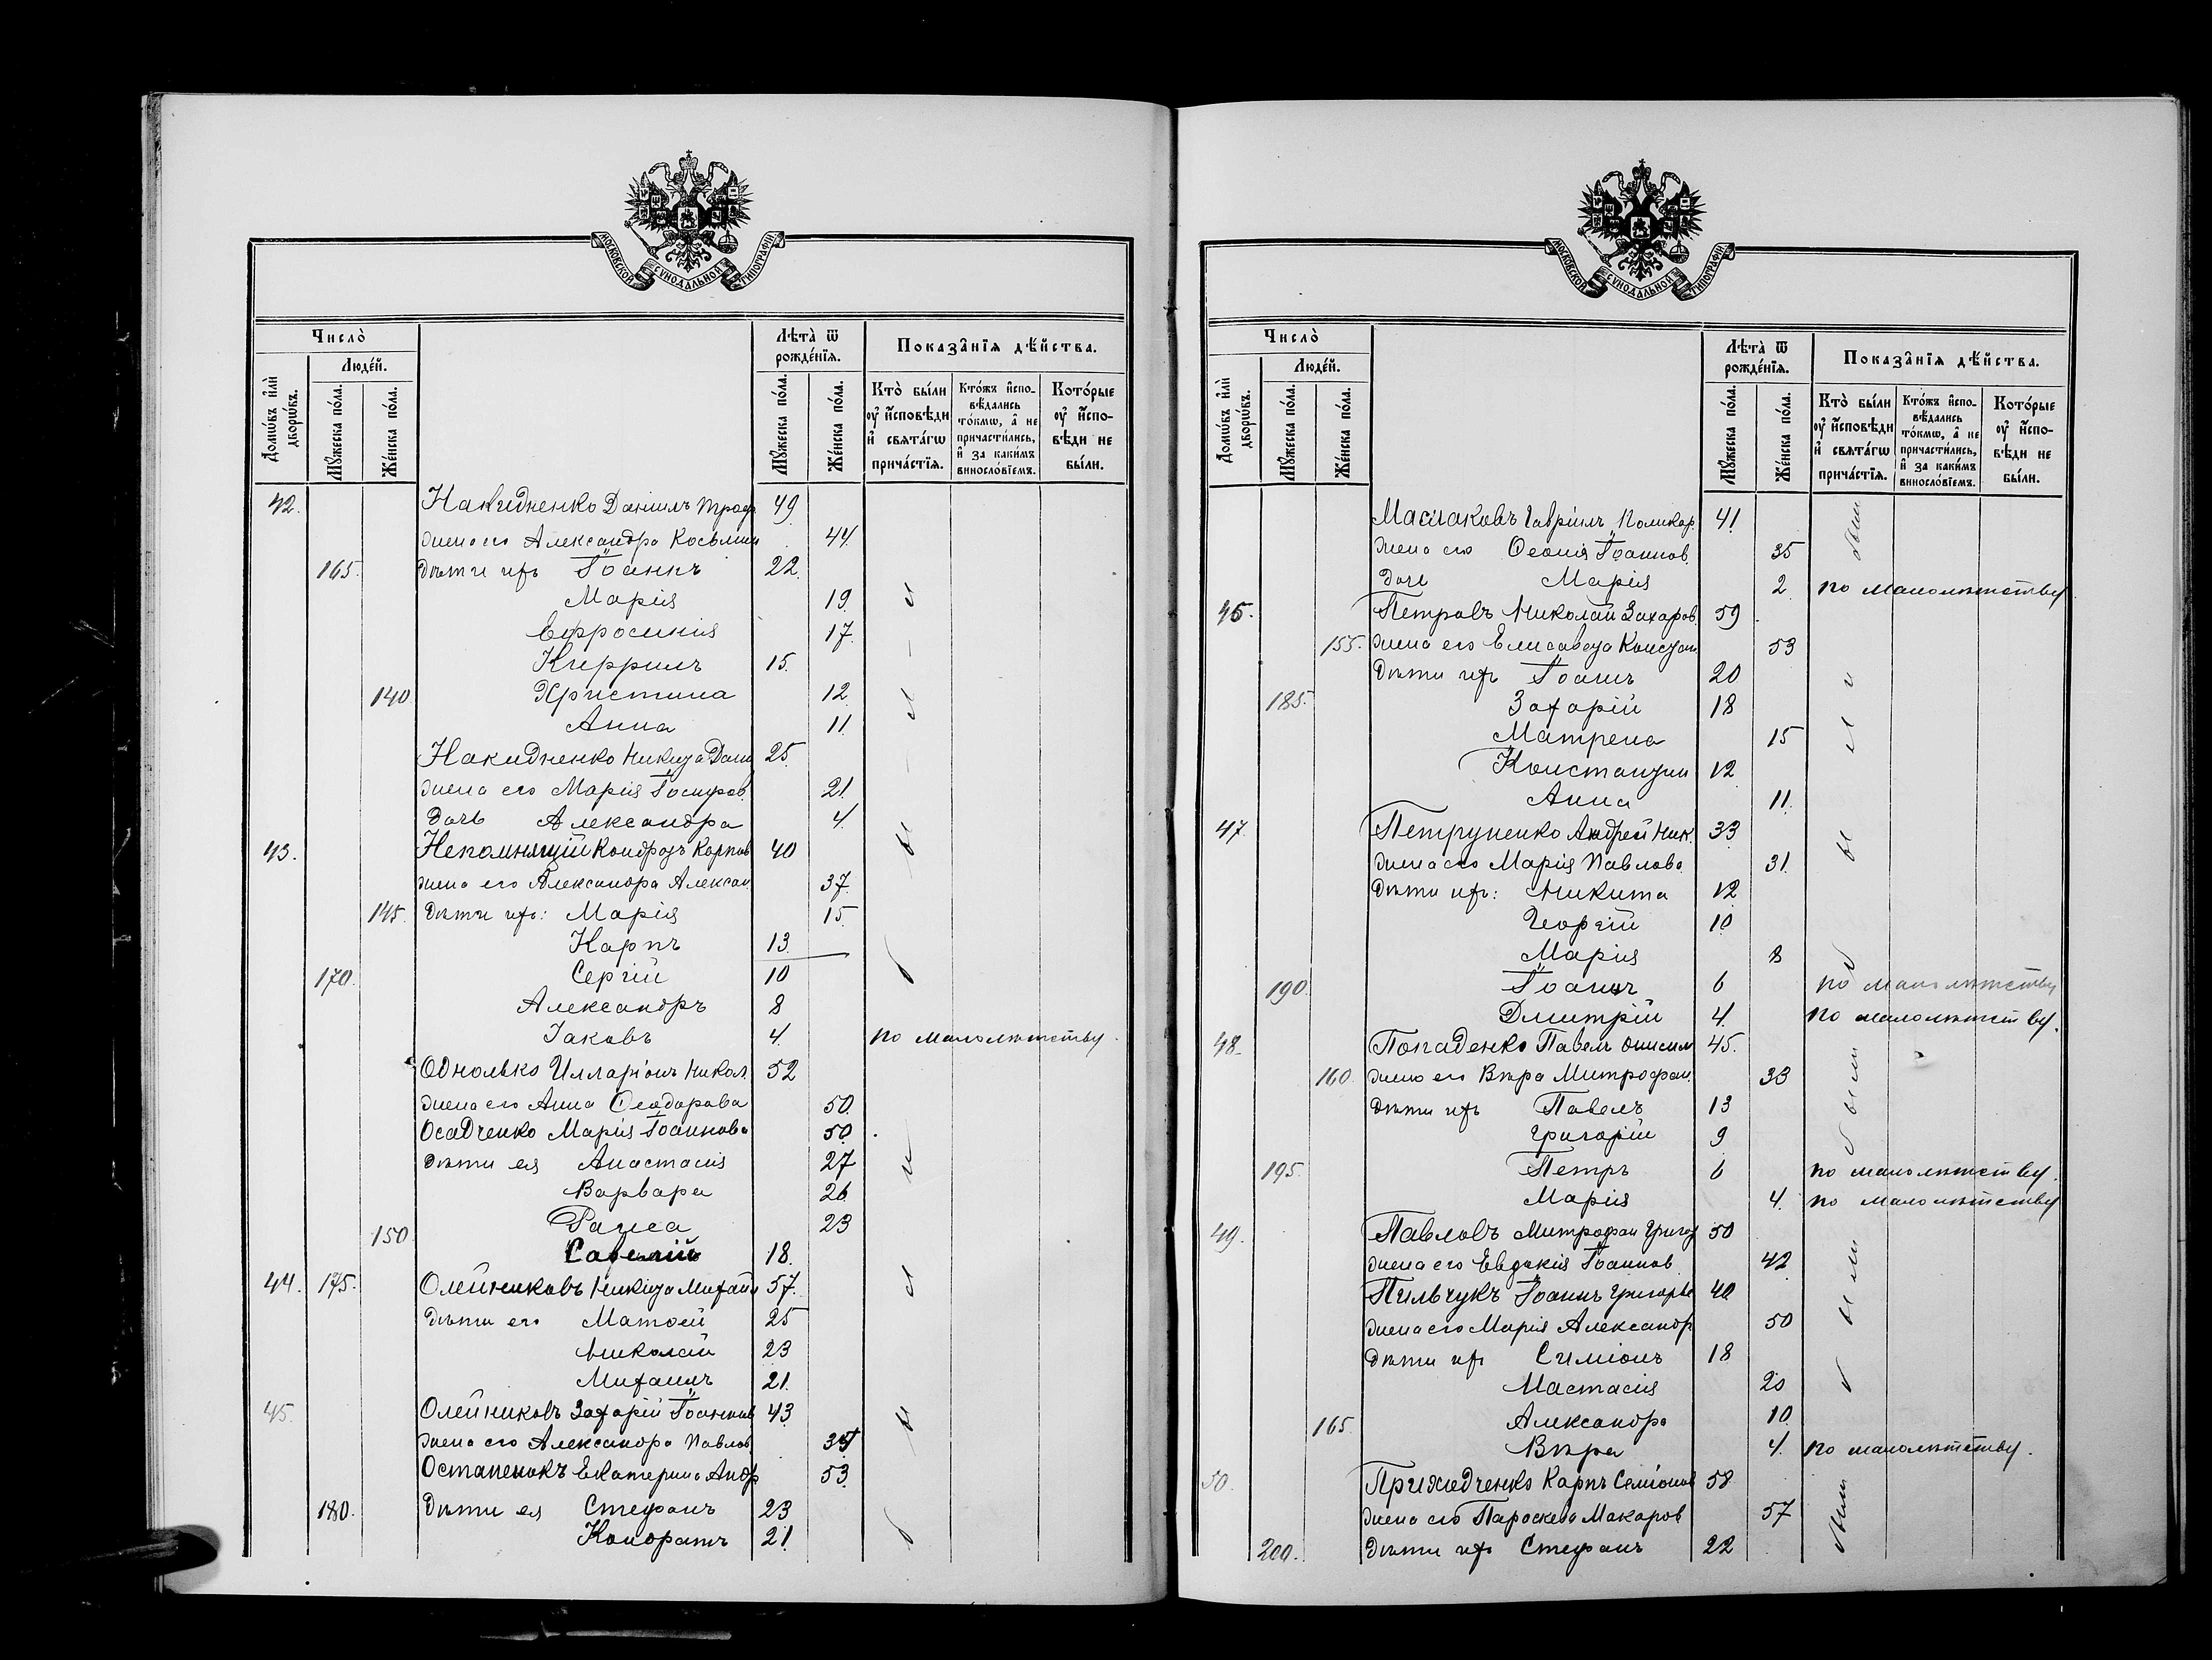 МОСКОВСКОЙ СУНОДАЛЬНОЙ ТИПОГРАФІИ
Число̀
Люде́й.
Домѡ́въ и҆лѝ дворѡ́въ.
Мꙋ́жеска по́ла.
Же́нска по́ла.
Лѣта̀ ѿ рожде́нїѧ.
Мꙋ́жеска по́ла.
Же́нска по́ла.
Показа̑нїѧ дѣ́йства.
Кто̀ бы́ли ᲂу҆ и҆́сповѣди и҆ свѧта́гѡ прича́стїѧ.
Кто́жъ и҆спо-вѣ́дались то́кмѡ, а҆ не причасти́лись, и҆ за каки́мъ виносло́вїемъ.
Кото́рые ᲂу҆ и҆́спо-вѣди не бы́ли.
42. Накидненко Даніилъ Троф 49
жена его Александра Косьмин 44
165. дѣти ихъ Іоаннъ 22
Марія 19
Ефросинія 17
Кирриллъ 15
140 Христина 12
Анна 11
Накидненко Никита Дани 25
жена его Марія 21
дочь Александра 4
43. Непомнящій Кондратъ Карпов 40
жена его Александра Алексан 37
145. дѣти ихъ: Марія 15
Карпъ 13
170. Сергій 10
Александръ 8
Іаковъ 4 по малолѣтству.
Однолько Илларіонъ Никол. 52
жена его Анна Ѳеодорова 50
Осадченко Марія Іоаннова 50
дѣти ея Анастасія 27
Варвара 26
150 Раиса 23
Савелій 18
44. 175. Олейниковъ Никита Михайл 57
дѣти его Матѳей 25
Николай 23
Михаилъ 21
45. Олейниковъ Захарій Іоаннов 43
жена его Александра Павлов
Остапенокъ Екатерина Андр 53
180. дѣти ея Стефанъ 23
Кондратъ 21
МОСКОВСКОЙ СУНОДАЛЬНОЙ ТИПОГРАФІИ
Число̀
Люде́й.
Домѡ́въ и҆лѝ дворѡ́въ.
Мꙋ́жеска по́ла.
Же́нска по́ла.
Лѣта̀ ѿ рожде́нїѧ.
Мꙋ́жеска по́ла.
Же́нска по́ла.
Показа̑нїѧ дѣ́йства.
Кто̀ бы́ли ᲂу҆ и҆́сповѣди и҆ свѧта́гѡ прича́стїѧ.
Кто́жъ и҆спо-вѣ́дались то́кмѡ, а҆ не причасти́лись, и҆ за каки́мъ виносло́вїемъ.
Кото́рые ᲂу҆ и҆́спо-вѣди не бы́ли.
Маслаковъ Гавріилъ Поликар. 41 были
жена его Іоаннов. 35
дочь Марія 2 по малолѣтству
46. Петровъ Николай Захаров. 59
155. жена его Елисавета Констан 53
дѣти ихъ Іоаннъ 20
185. Захарій 18
Матрена 15
Константин 12
Анна 11
47 Петруненко Андрей Ник. 33
жена его Марія Павлова 31
дѣти ихъ: Никита 12
Георгій 10
Марія 8
190 Іоаннъ 6 по малолѣтству
Дмитрій 4 по малолѣтству.
48. Попаденко Павелъ Онисим 45.
160 жена его Вѣра Митрофан. 33 были
дѣти ихъ Павелъ 13
Григорій 9
195. Петръ 6 по малолѣтству.
Марія 4. по малолѣтству
49. Павловъ Митрофан Григор 50
жена его Евдокія Іоаннов 42 были
Пильчукъ Іоаннъ Григорье 40
жена его Марія Александр 50
дѣти ихъ Симіонъ 18
Настасія 20
165. Александра 10
Вѣра 4. по малолѣтству.
50. Прижедченко Карпъ Семіонов 58
жена его Параскева Макаров 57 были
200. дѣти ихъ Стефанъ 22